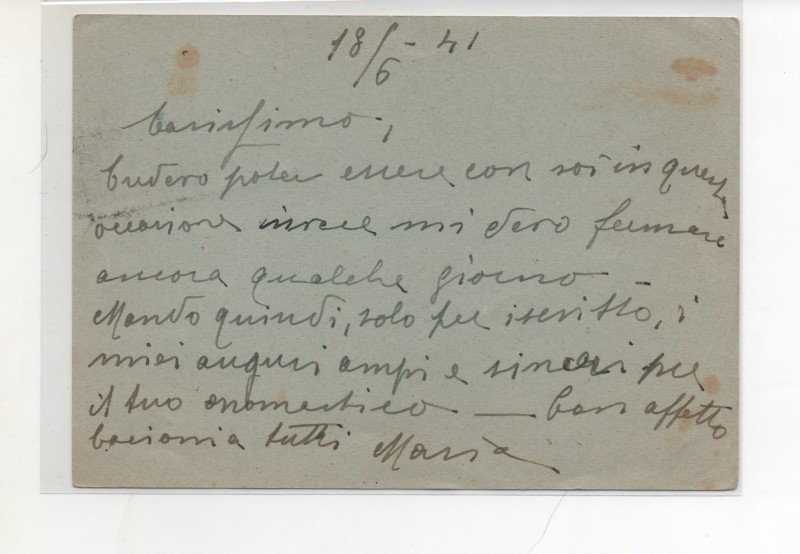 18/6 - 41
Carissimo,
Credevo poter essere con voi in questa
occasione invece mi devo fermare
ancora qualche giorno -
Mando quindi, solo per iscritto, i
miei auguri ampi e sinceri per
il tuo onomastico — Con affetto
bacioni a tutti Maria